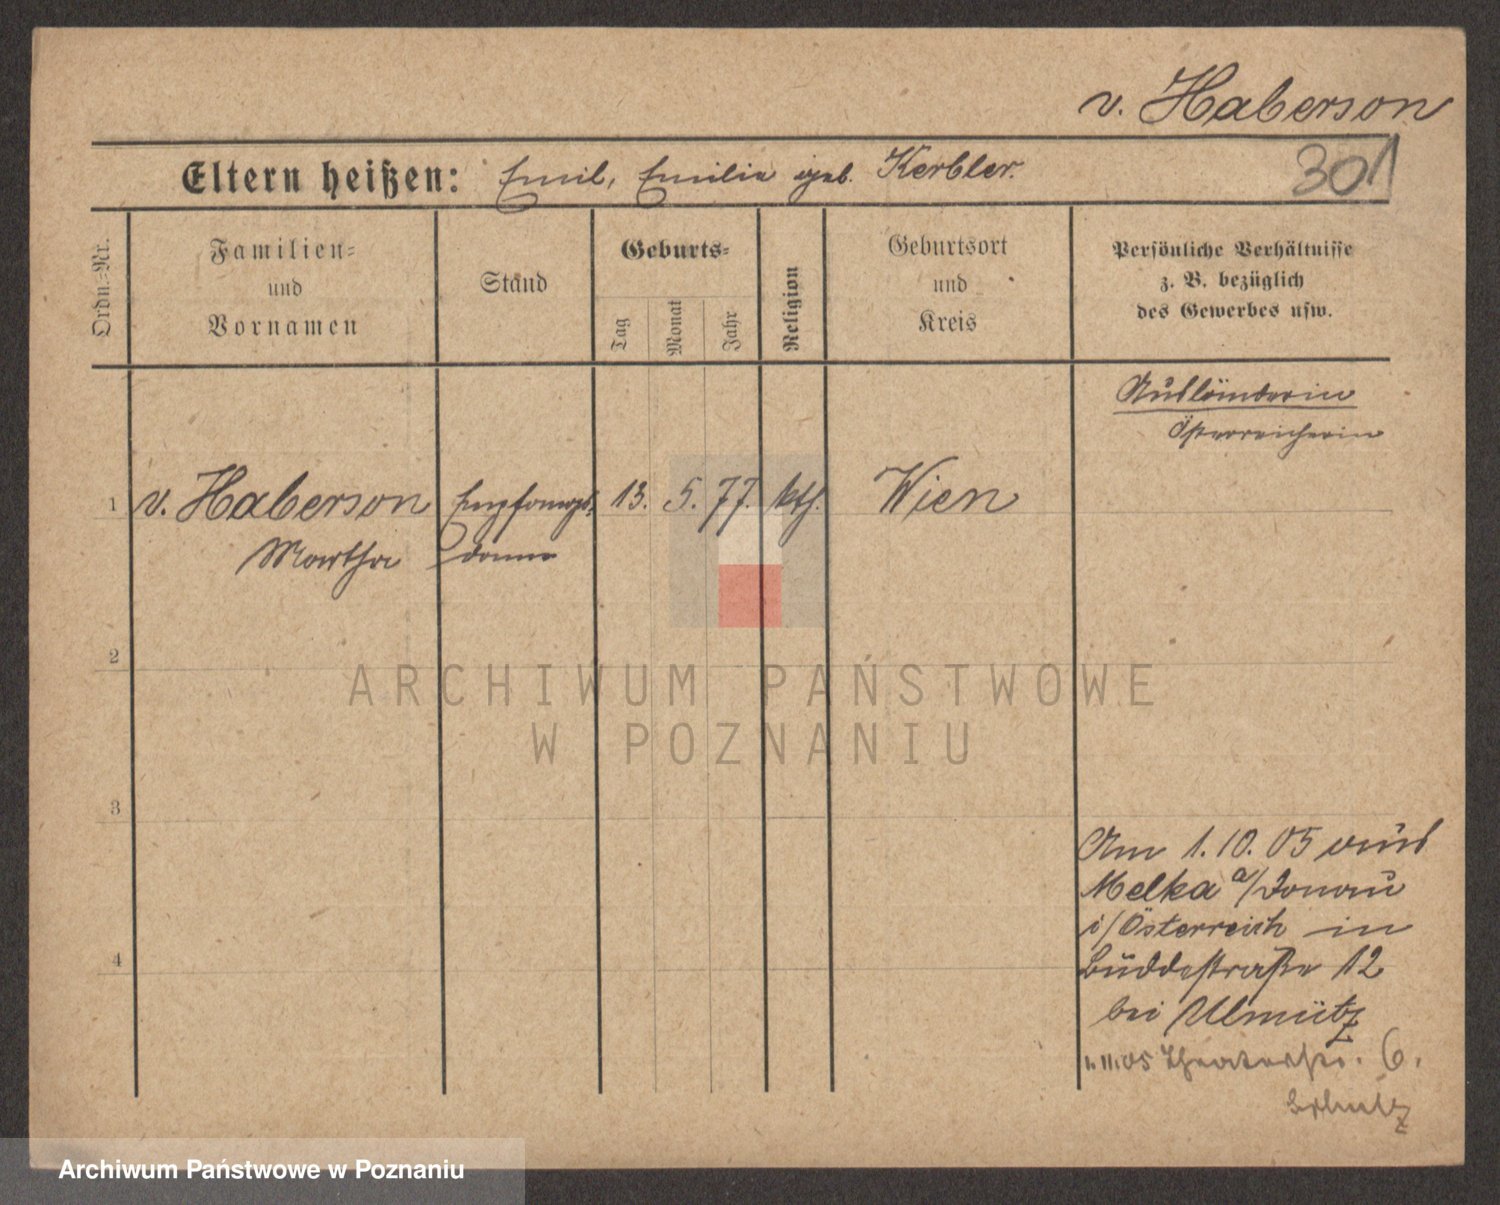 v. Haberson
Eltern heißen: Emil, Emilie geb. Kerbler.
301
Ordn.=Nr.
Familien=
und
Vornamen
Stand
Geburts=
Tag
Monat
Jahr
Religion
Geburtsort
und
Kreis
Persönliche Verhältnisse
z. B. bezüglich
des Gewerbes usw.
Ausländerin
Österreicherin
1 v. Haberson Empfangs= 13. 5. 77. kth. Wien
Martha dame
2
ARCHIWUM PAŃSTWOWE
W POZNANIU
3
Am 1.10.05 aus
Melka a/Donau
i/Österreich in
4
Buddestraße 12
bei Ulmütz
1.11.05 Theaterstr. 6.
Archiwum Państwowe w Poznaniu